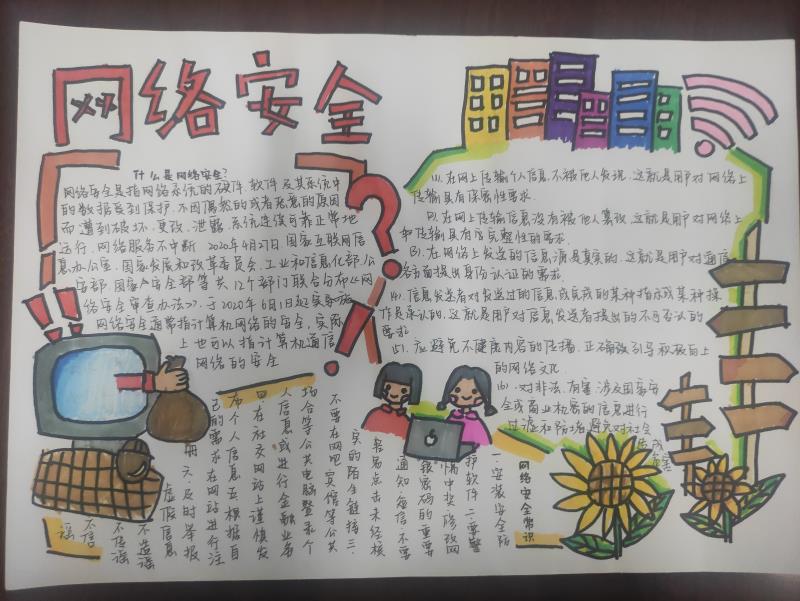 网络安全
什么是网络安全?
网络安全是指网络系统的硬件、软件及其系统中
的数据受到保护、不因偶然的或者恶意的原因
而遭到破坏、更改、泄露、系统连续可靠正常地
运行、网络服务不中断 2020年4月27日,国家互联网信
息办公室、国家发展和改革委员会、工业和信息化部、公
安部、国家安全部等共12个部门联合分布《网
络安全审查办法》,于2020年6月1日起实施
网络安全通常指计算机网络的安全,实际
上也可以指计算机通信
网络的安全
(1).在网上传输个人信息不被他人发现,这就是用户对网络上
传输具有保密性要求.
(2).在网上传输信息没有被他人篡改,这就是用户对网络上
传输具有完整性的要求.
(3).在网络上发送的信息源是真实的,这就是用户对通信
各方面提出身份认证的要求.
(4).信息发送者对发送过的信息或完成的某种操
作是承认的,这就是用户对信息发送者提出的不可否认的
要求
(5).应避免不健康内容的传播,正确引导积极向上
的网络文化.
(6).对非法、有害、涉及国家安
全或商业机密的信息进行
过滤和防堵,避免对社会
网络安全常识
一、安装安全防
护软件 二、要警
惕中奖、修改网
银密码的重要
通知、短信 不要
轻易点击未经核
实的陌生链接 三、
不要在网吧、宾馆等公共
场合等公共电脑登录个
人信息或进行金融业务
四、在社交网站上谨慎发
布个人信息 五、根据自
己的需求在网站进行注
册 六、及时举报
虚假信息
不造谣
不传谣
不信
谣